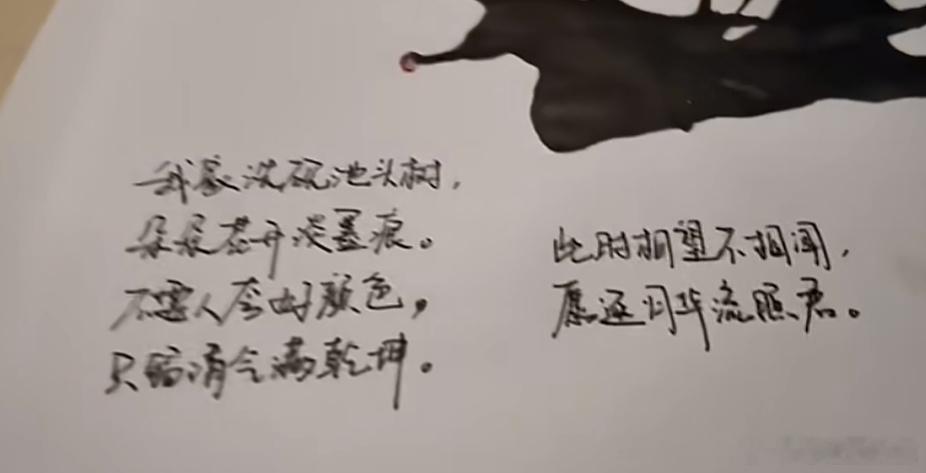 我家洗砚池头树，
朵朵花开淡墨痕。
不要人夸好颜色，
只留清气满乾坤。
此时相望不相闻，
愿逐月华流照君。